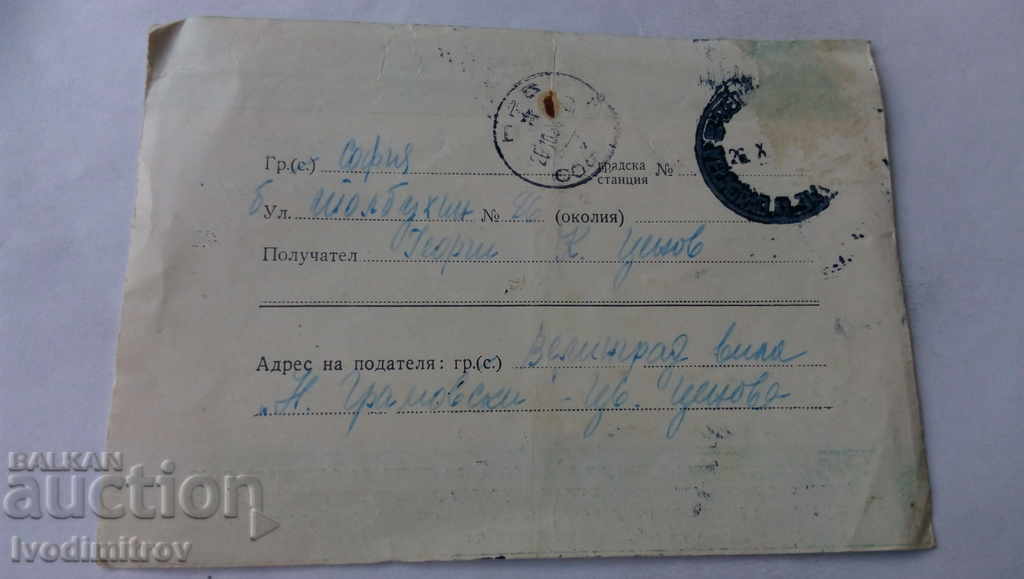 Гр.(с.) София градска станция №
б. Ул. Толбухин № 26 (околия)
Получател Георги К. Ценов
Адрес на подателя: гр.(с.) Велинград вила
"Н. Грамовски" - Цв. Ценова
26. X
СОФ
BALKAN
auction
Ivodimitrov